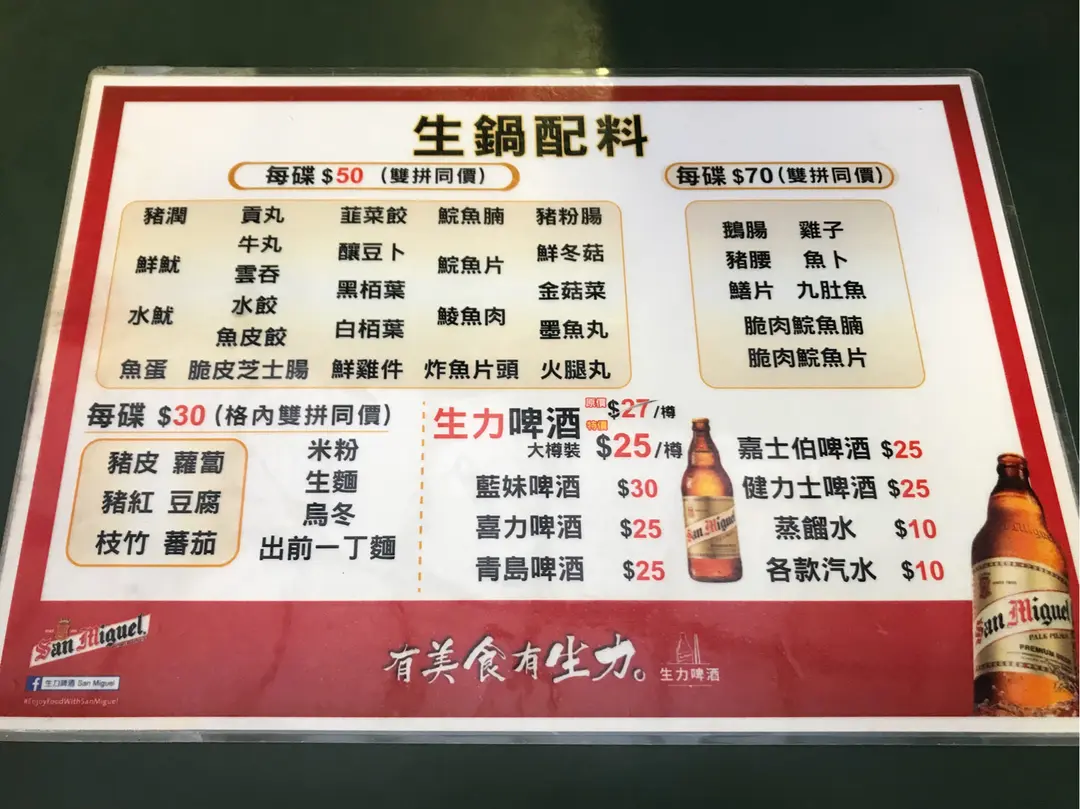 生鍋配料
每碟 $50 (雙拼同價)
豬潤 貢丸 韮菜餃 鯇魚腩 豬粉腸
鮮魷 牛丸 釀豆卜 鯇魚片 鮮冬菇
雲吞 黑栢葉 金菇菜
水魷 水餃 白栢葉 鯪魚肉 墨魚丸
魚皮餃
魚蛋 脆皮芝士腸 鮮雞件 炸魚片頭 火腿丸
每碟 $70(雙拼同價)
鵝腸 雞子
豬腰 魚卜
鱔片 九肚魚
脆肉鯇魚腩
脆肉鯇魚片
每碟 $30 (格內雙拼同價)
豬皮 蘿蔔
豬紅 豆腐
枝竹 蕃茄
米粉
生麵
烏冬
出前一丁麵
生力啤酒 原價 $27/樽
大樽裝 特價 $25/樽
藍妹啤酒 $30
喜力啤酒 $25
青島啤酒 $25
嘉士伯啤酒 $25
健力士啤酒 $25
蒸餾水 $10
各款汽水 $10
San Miguel
San Miguel
PALE PILSEN
San Miguel
f 生力啤酒 San Miguel
#EnjoyFoodWithSanMiguel
有美食有生力。 生力啤酒